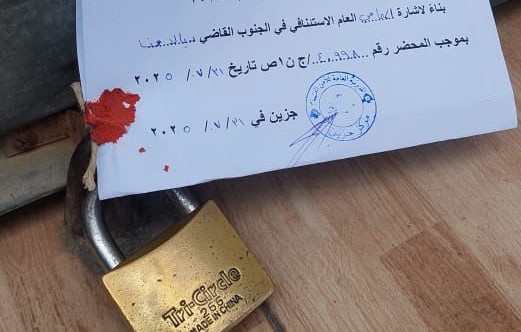 بناءً لاشارة المحامي العام الاستئنافي في الجنوب القاضي
بموجب المحضر رقم /ج ن ا ص تاريخ ٢٠٢٥/٠٧/٢١
جزين في ٢٠٢٥/٠٧/٢١
Tri-Circle
266
MADE IN CHINA